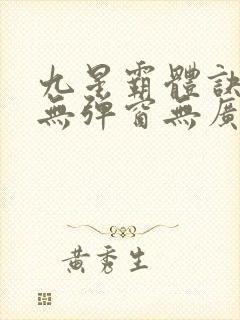 九星霸體訣
無彈窗無廣
黃秀生